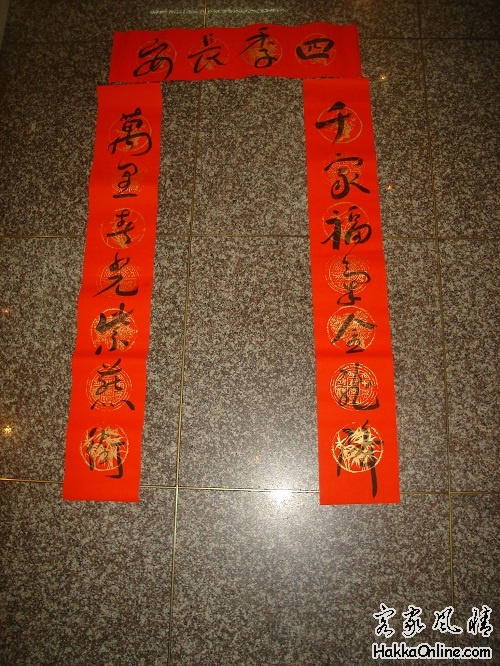 四季長安
千家福氣金龍降
萬里春光紫燕銜
客家风情
HakkaOnline.com